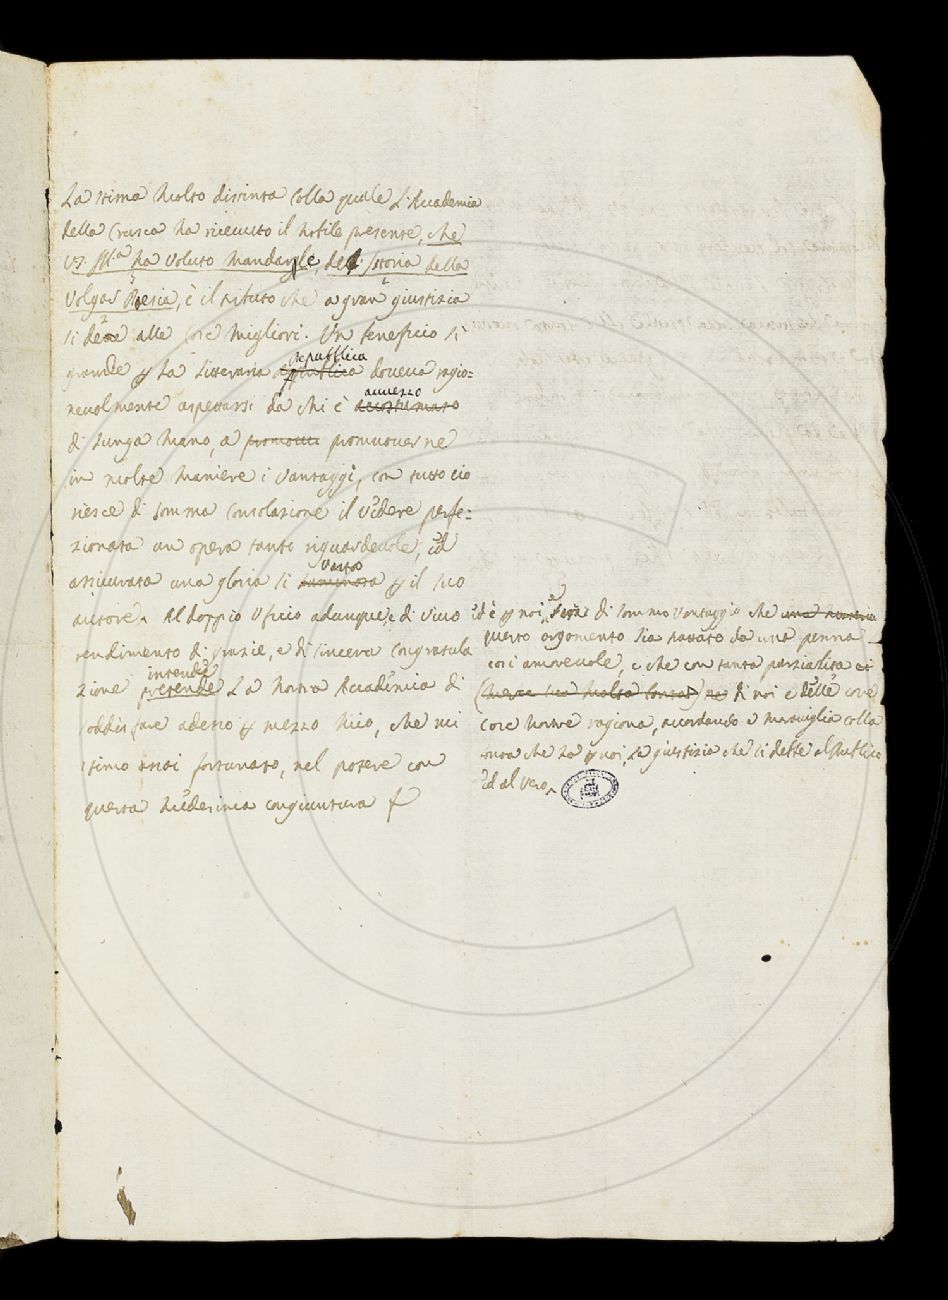 La stima molto distinta colla quale l'Accademia
della Crusca ha ricevuto il nobile presente, che
VS. Ill.a ha voluto mandargle, della Storia della
Volgar Poesia, è il tributo che a gran giustizia
si deve alle cose migliori. Un beneficio sì
grande p la litteraria republica repubblica doveva ragio=
nevolmente aspettarsi da chi è accostumato avvezzo
di lunga mano, a promouer promuoverne
in molte maniere i vantaggi, con tutto cio
riesce di somma consolazione il vedere perfe=
zionata un opera tanto riguardevole, ed
assicurata una gloria sì luminosa vasta p il suo
autore. Al doppio Ufficio adunque, e di vivo
rendimento di grazie, e di sincera congratula
zione pretende intende la nostra Accademia di
soddisfare adesso p mezzo mio, che mi
stimo assai fortunato, nel potere con
questa medesima congiuntura
ed è p noi, di sommo vantaggio che una nostra
questo argomento sia trattato da una penna
così amorevole, e che con tanta parzialità ci
di noi e delle cose
cose nostre ragiona, accordando a maraviglia colla
che ha p noi, la giustizia che si deve al Pubblico
ed al vero.